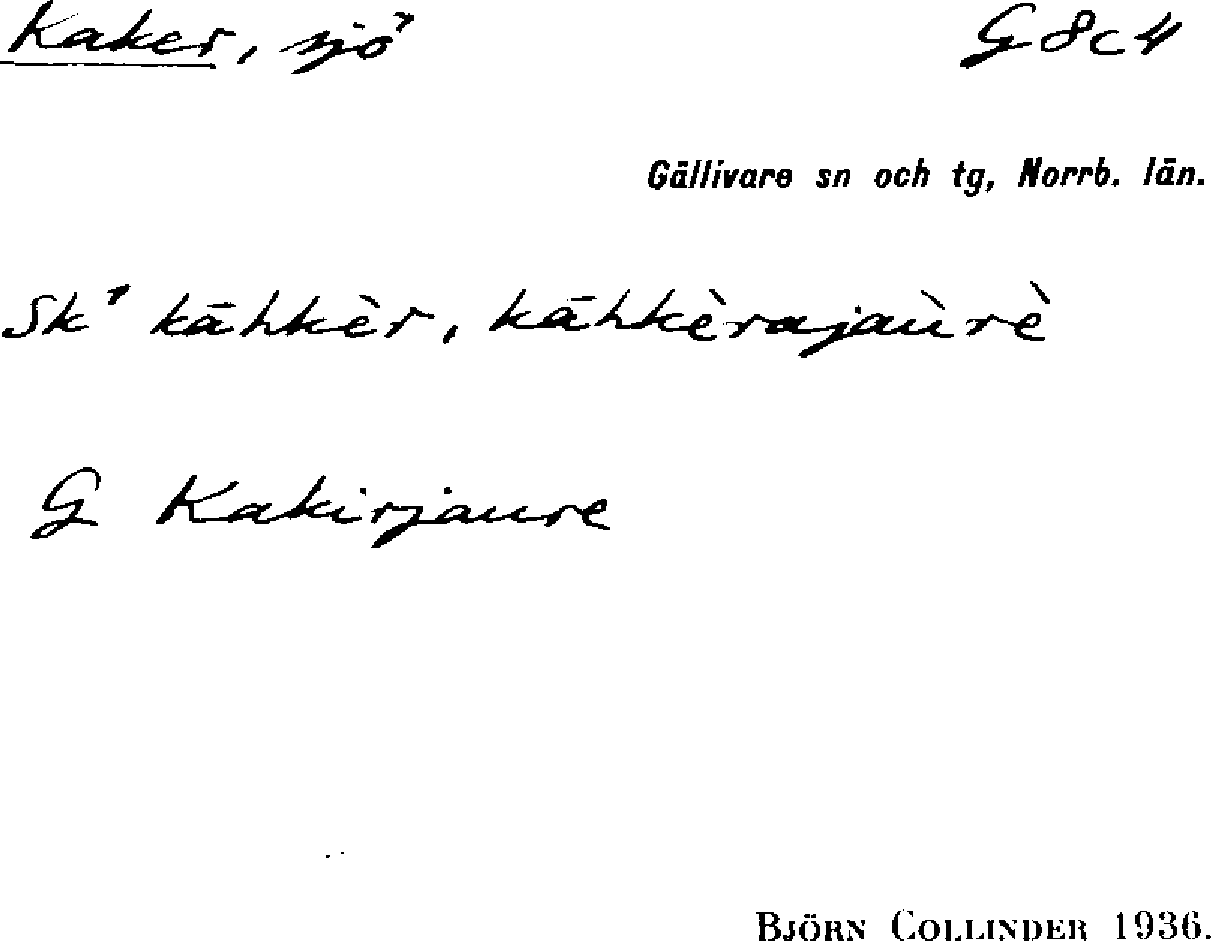 Kaker, sjö G8c4
Gällivare sn och tg, Norrb. län.
Sk' kāhkèr, kāhkèrajaùrè
G Kakirjaure
BJÖRN COLLINDER 1936.